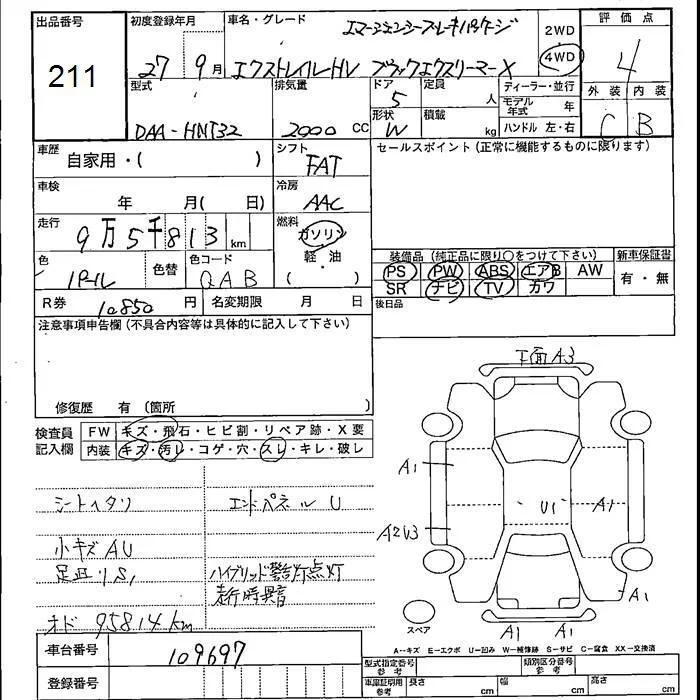 出品番号
211
初度登録年月
27 9月
車名・グレード
エマージェンシーブレーキパッケージ
エクストレイルHV ブラックエクストリーマーX
2WD
4WD
評価点
4
外装 内装
C B
型式
DAA-HNT32
排気量
2000 CC
ドア
5
形状
W
定員
人
積載
kg
ディーラー・並行
モデル年式 年
ハンドル 左・右
車歴
自家用・( )
シフト
FAT
車検
年 月( 日)
冷房
AAC
走行
9万5千813 km
燃料
ガソリン
軽・油
( )
色
パール
色替
色コード
QAB
R券 10850 円
名変期限 月 日
セールスポイント(正常に機能するものに限ります)
装備品(純正品に限り○をつけて下さい)
新車保証書
PS PW ABS エアB AW
SR ナビ TV カワ
有・無
後日品
注意事項申告欄(不具合内容等は具体的に記入して下さい)
修復歴 有(箇所 )
検査員記入欄
FW キズ・飛石・ヒビ割・リペア跡・X要
内装 キズ・汚レ・コゲ・穴・スレ・キレ・破レ
シートヘタリ
エンドパネル U
小キズ AU
足回りS1
ハイブリッド警告灯点灯
走行時異音
オド 95814km
下面A3
A1
A2U3
U1
A1
A1
A1 A1
スペア
A--キズ E--エクボ U--凹み W--補修跡 S--サビ C--腐食 XX--交換済
車台番号
109697
登録番号
型式指定番号 参考
類別区分番号 参考
車庫証明用 参考
長さ cm
幅 cm
高さ cm